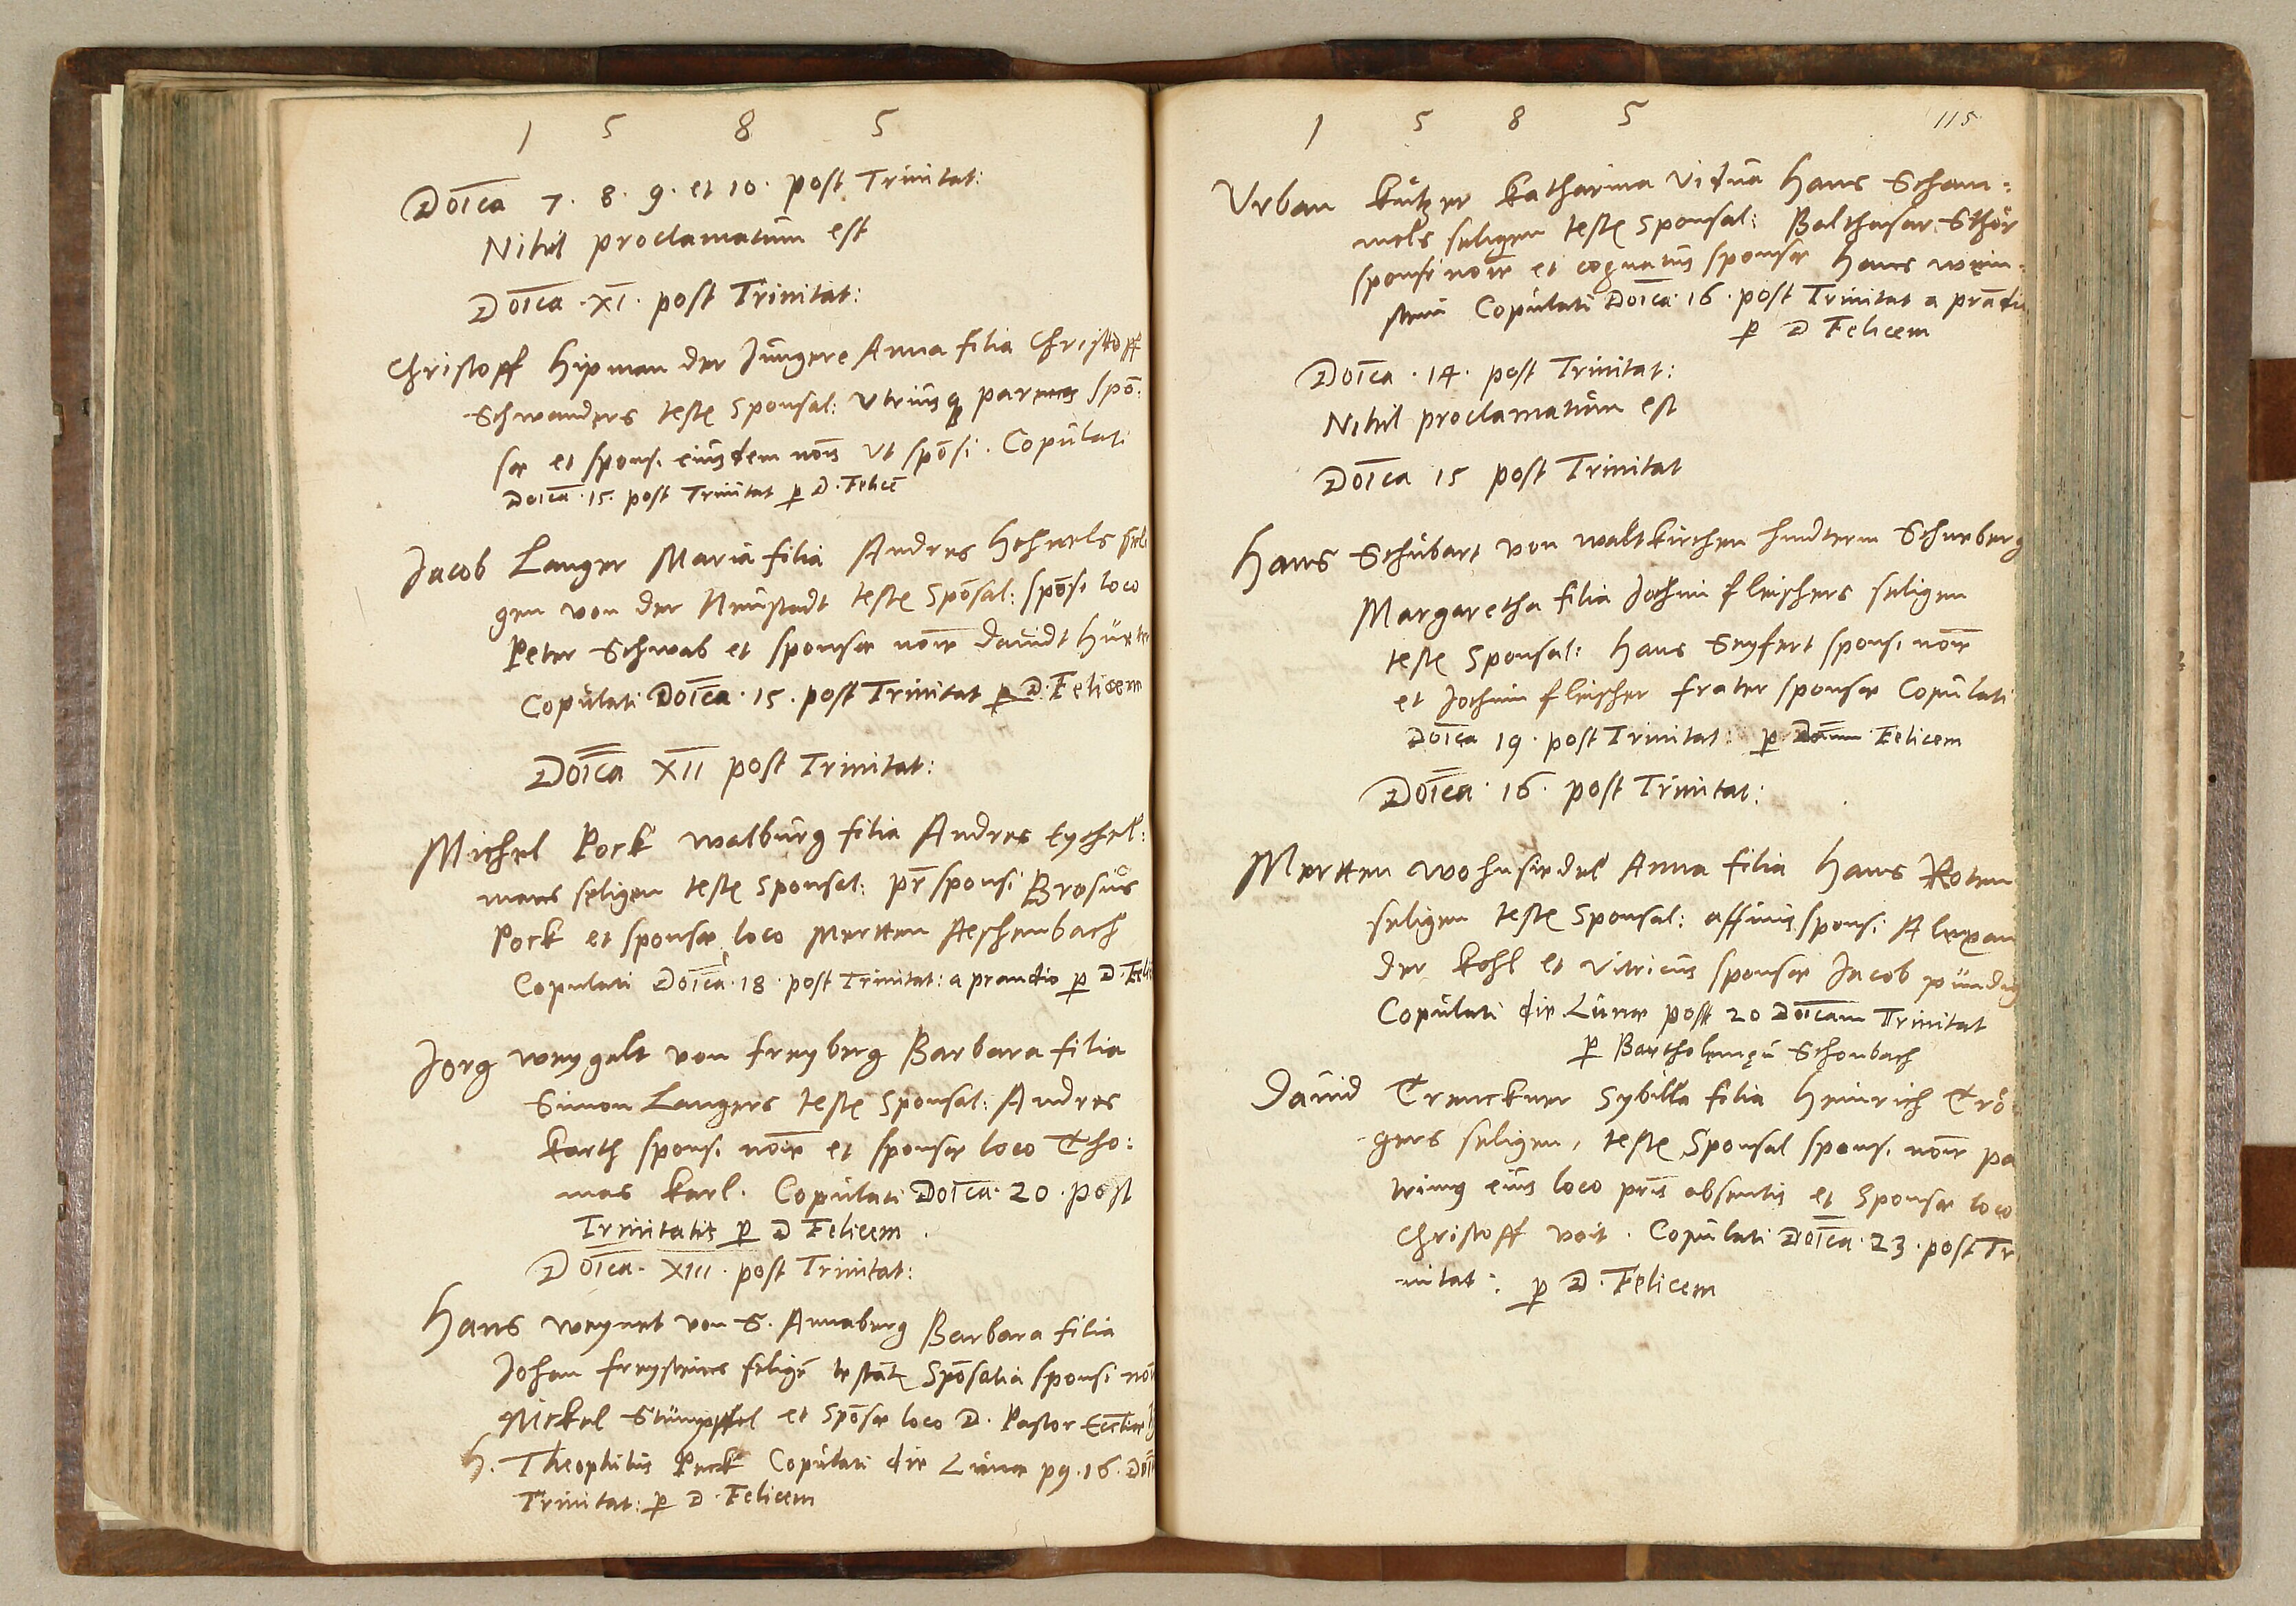 1 5 8 5
Doīca 7. 8. 9. et 10. post Trinitat:
Nihil proclamatum est
Doīca. XI. post Trinitat:
Christoff Hipman der Jungere Anna filia Christoff
Schwanders teste Sponsal: Utriusq parentes spō:
sae et sponsi eiusdem nōis ut spōsi. Copulati
Doīca. 15. post Trinitat p D. Felicē
Jacob Langer Maria filia Andres Hehnels seli
gen von der Neustadt teste Spōsal: spōsi loco
Peter Schwab et sponsae nōie Davidt
Copulati Doīca. 15. post Trinitat p D. Felicem
Doīca XII post Trinitat:
Michel Pock Walburg filia Andres Eychel:
mans seligen teste Sponsal: pr̄ sponsi Brosius
Pock et sponsae loco Mertten Aeschenbach
Copulati Doīca. 18. post Trinitat: a prandio p D. Feli
Jorg Weygelt von Freyberg Barbara filia
Simon Langers teste Sponsal: Andres
Karth sponsi nōie et sponsae loco Tho:
mas Karl. Copulati Doīca. 20. post
Trinitatis p D Felicem.
Doīca. XIII. post Trinitat:
Hans Weynet von S. Annaberg Barbara filia
Johan Freysteins seligē testāt Spōsalia sponsi nōi
Nickel Stumpffel et Spōsae loco D. Pastor Eccliae
H. Theophilus Peck Copulati die Lunae p9. 16. Doī
Trinitat: p D. Felicem
1 5 8 5
115
Urban Kutzer Katharina Vidua Hans Scham:
mels seligen teste Sponsal: Balthasar Sthör
sponsi nōie et cognatus sponsae Hans Wein:
stein Copulati Doīca. 16. post Trinitat a prādi
p D Felicem
Doīca. 14. post Trinitat:
Nihil proclamatum est
Doīca 15 post Trinitat
Hans Schubart von Waltkirchen hindterm Schneberg
Margaretha filia Jochim Fleischers seligen
teste Sponsal: Hans Seyfert sponsi nōie
et Jochim Fleischer frater sponsae Copulati
Doīca 19. post Trinitat: p Felicem
Doīca. 16. post Trinitat:
Mertten Wohnsiedel Anna filia Hans Roten
seligen teste Sponsal: affinis sponsi Alexan
der Kohl et Vitricus sponsae Jacob
Copulati die Lunae post 20 Doīcam Trinitat
p Bartholemeū Schonbach
David Trenckner Sybilla filia Heinrich Trö
gers seligen, teste Sponsal sponsi nōie pa
truus eius loco pr̄is absentis et Sponsae loco
Christoff Voit. Copulati Doīca. 23. post Tri
nitat: p D. Felicem